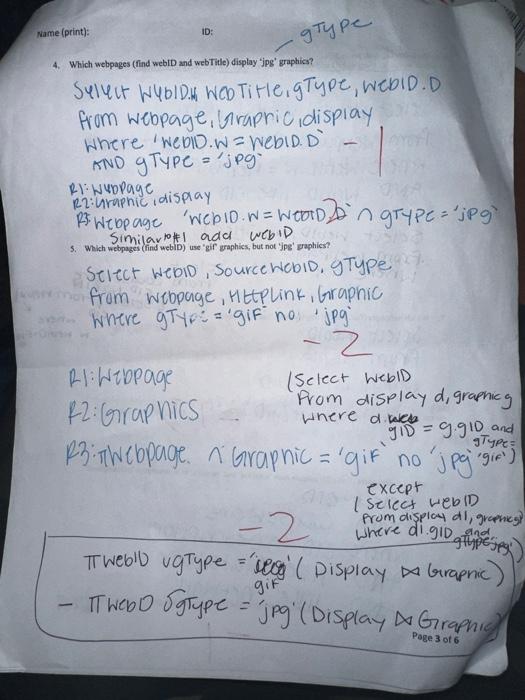 Name (print): ID:
gType
4. Which webpages (find webID and webTitle) display 'jpg' graphics?
Select WebID.W WebTitle, gType, WebID.D
from webpage, Graphic, display
Where 'WebID.W = WebID.D'
-1
AND gType = 'jpg'
R1: Webpage
R2: Graphic, display
R3: Webpage 'WebID.W = WebID.D' ∩ gType = 'jpg'
2
Similar to #1 add webID
5. Which webpages (find webID) use 'gif' graphics, but not 'jpg' graphics?
Select WebID, SourceWebID, gType
from webpage, HttpLink, Graphic
Where gType = 'gif' no 'jpg'
-2
R1: Webpage
R2: Graphics
R3: πWebpage ∩ Graphic = 'gif' no 'jpg'
(Select WebID
From display d, graphic g
where d.
gID = g.gID and
gType =
'gif')
except
(Select WebID
From display d1, graphic g1
where d1.gID and
gtype 'jpg')
-2
π WebID σgType = 'gif' (Display ⋈ Graphic)
- π WebD σgType = 'jpg' (Display ⋈ Graphic)
Page 3 of 6